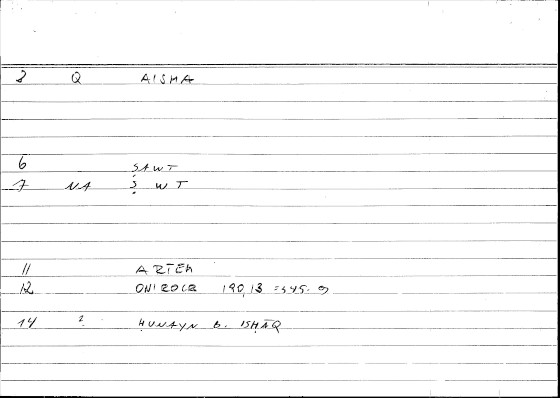 8 Q AISHA
6 ṢAWT
7 NA Ṣ W T
11 ARTEM
12 ONIROCR 190,13 =345.9
14 2 ḤUNAYN B. ISḤĀQ